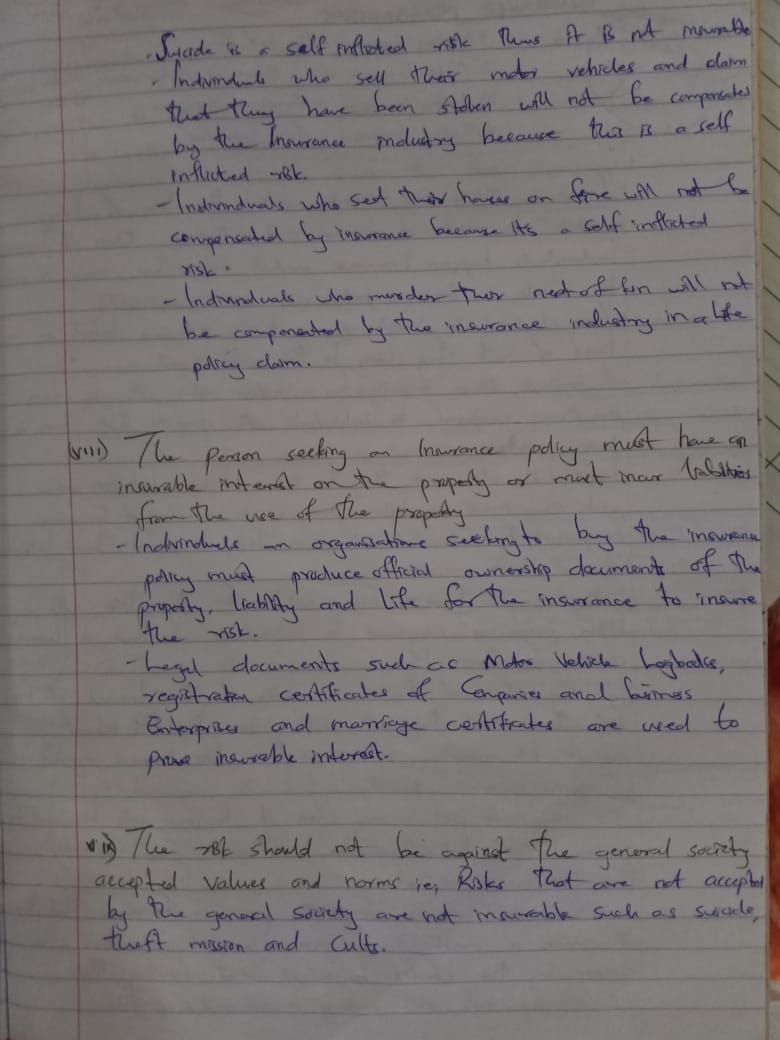 - Suicide is a self inflicted risk thus it is not insurable
- Individuals who sell their motor vehicles and claim
that they have been stolen will not be compensated
by the Insurance industry because this is a self
inflicted risk.
- Individuals who set their houses on fire will not be
compensated by insurance because its a self inflicted
risk.
- Individuals who murder their next of kin will not
be compensated by the insurance industry in a life
policy claim.
(viii) The person seeking an Insurance policy must have an
insurable interest on the property or must incur liabilities
from the use of the property
- Individuals an organisations seeking to buy the insurance
policy must produce official ownership documents of the
property, liability and life for the insurance to insure
the risk.
- Legal documents such as Motor Vehicle Logbooks,
registration certificates of Companies and business
Enterprises and marriage certificates are used to
prove insurable interest.
The risk should not be against the general society
accepted values and norms ie, Risks that are not accepted
by the general society are not insurable such as suicide,
theft mission and Cults.